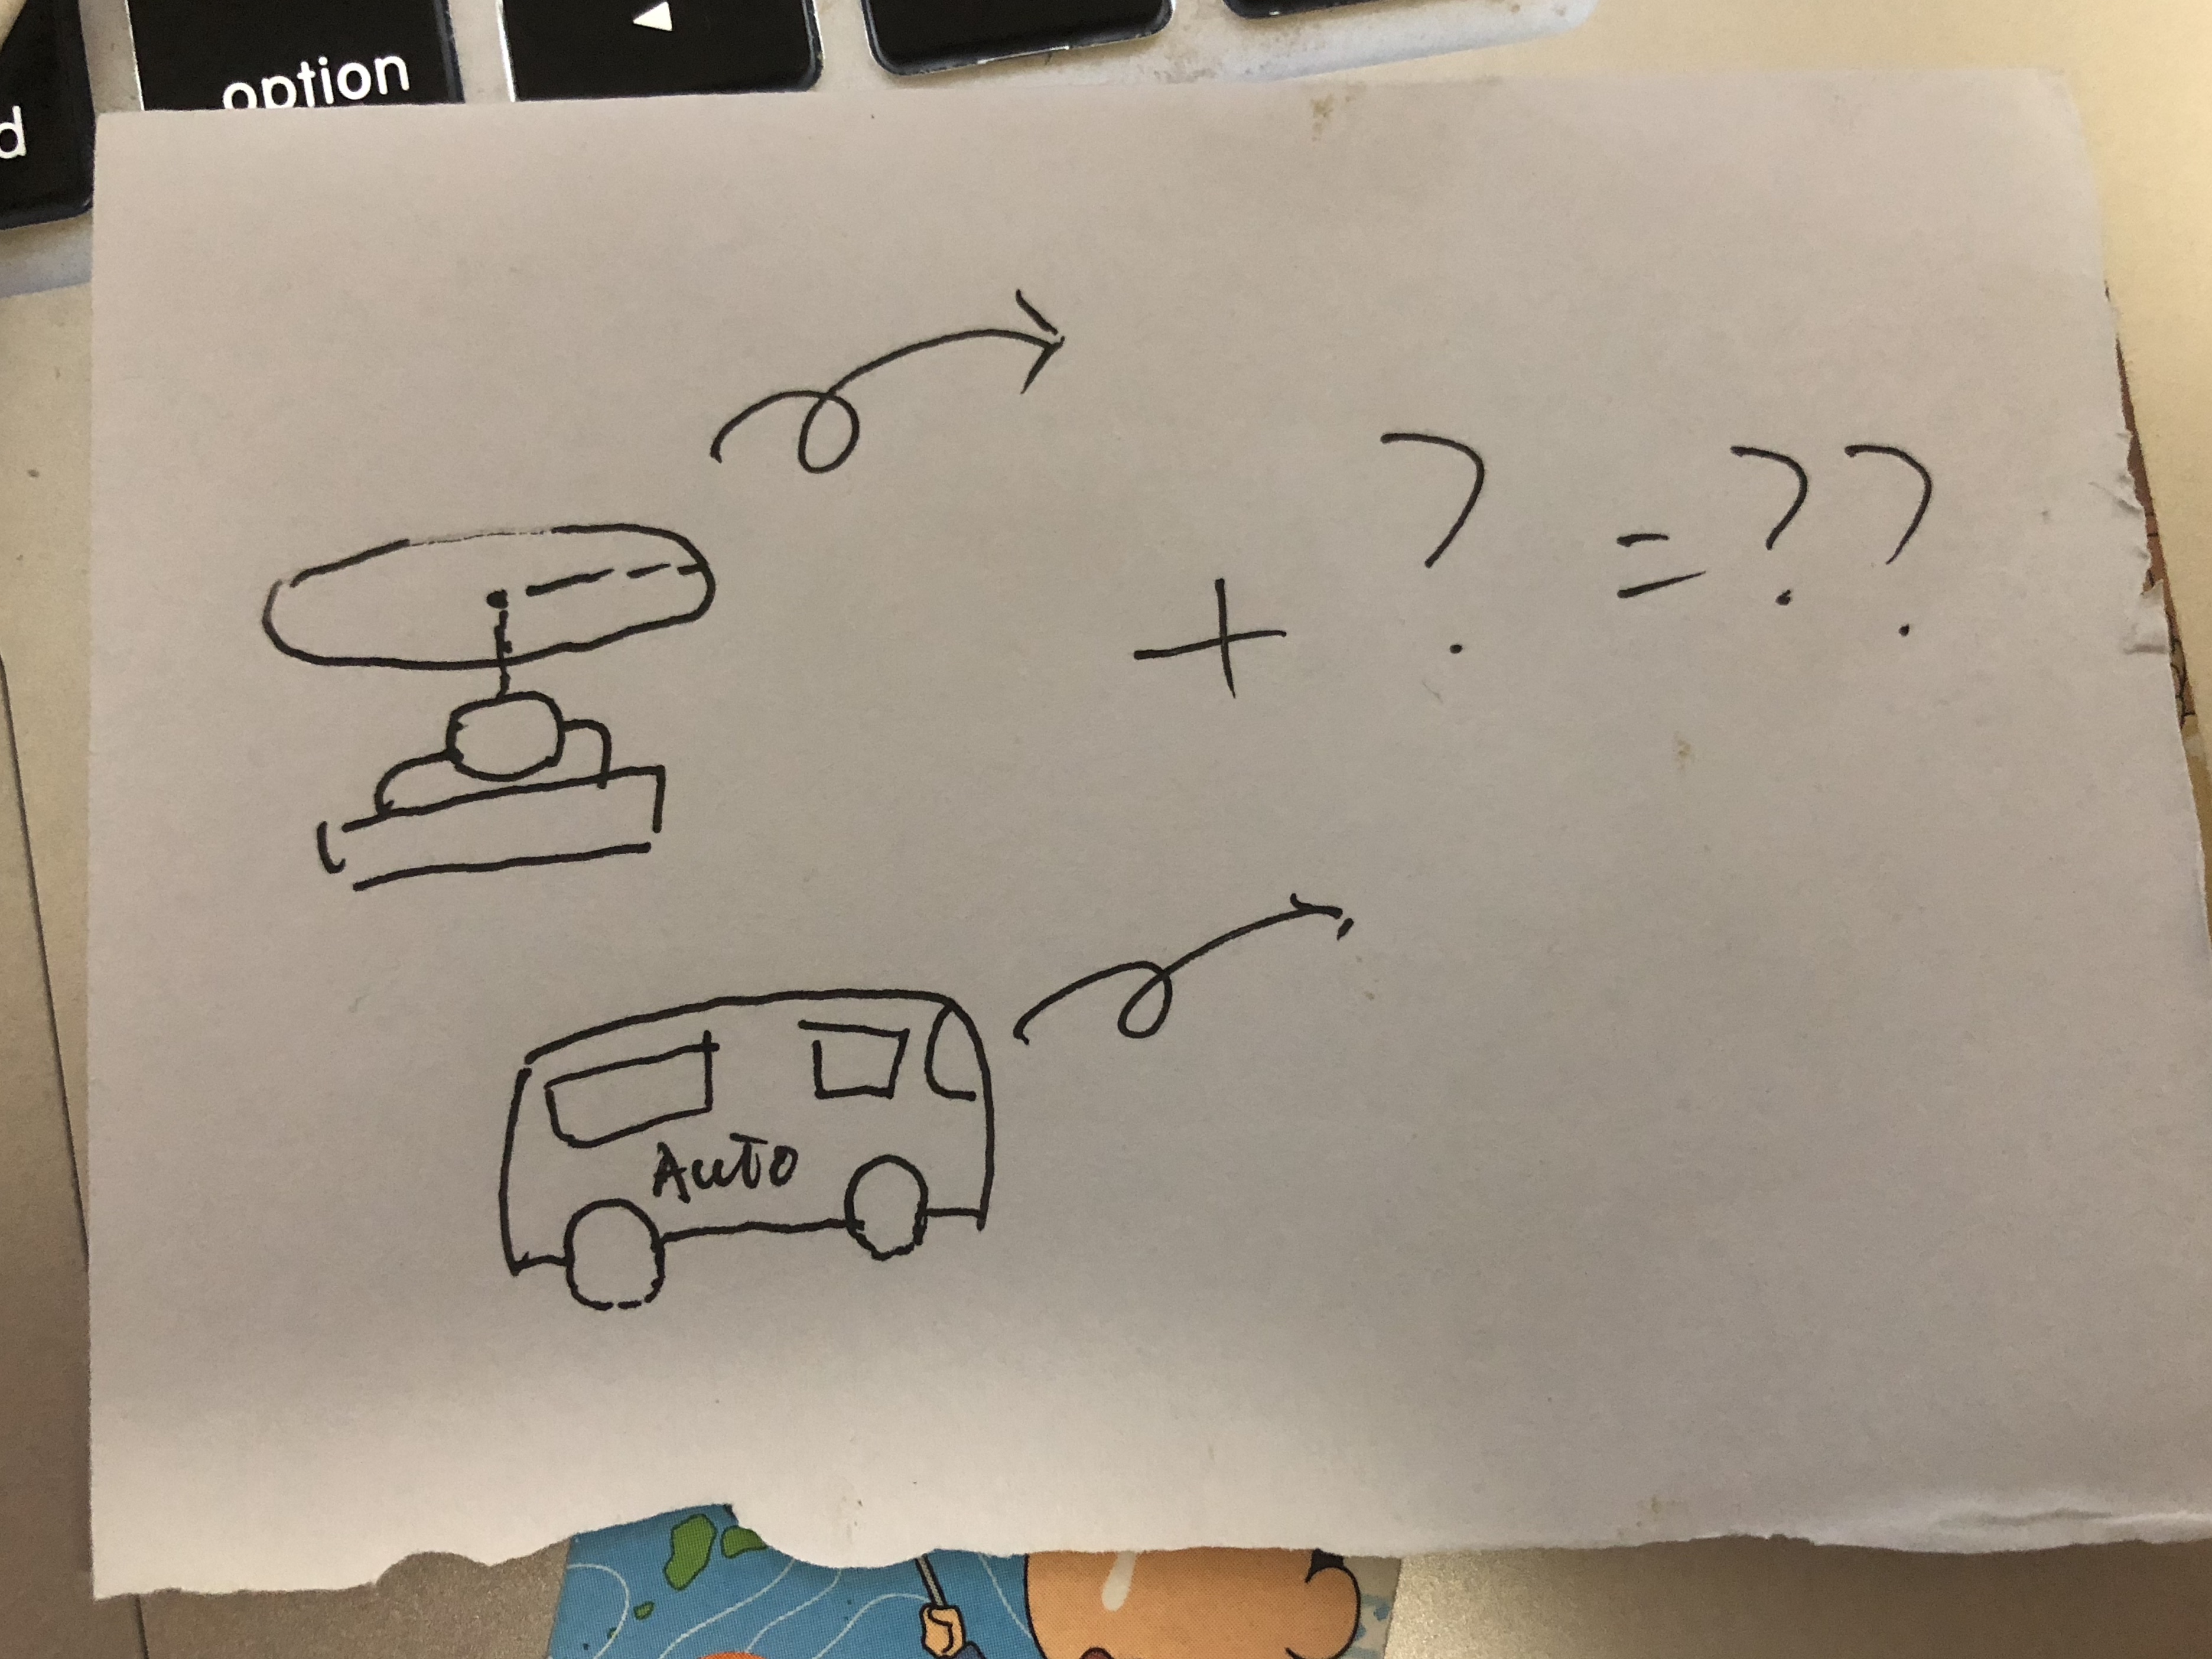 option
d
+ ? = ??
Auto